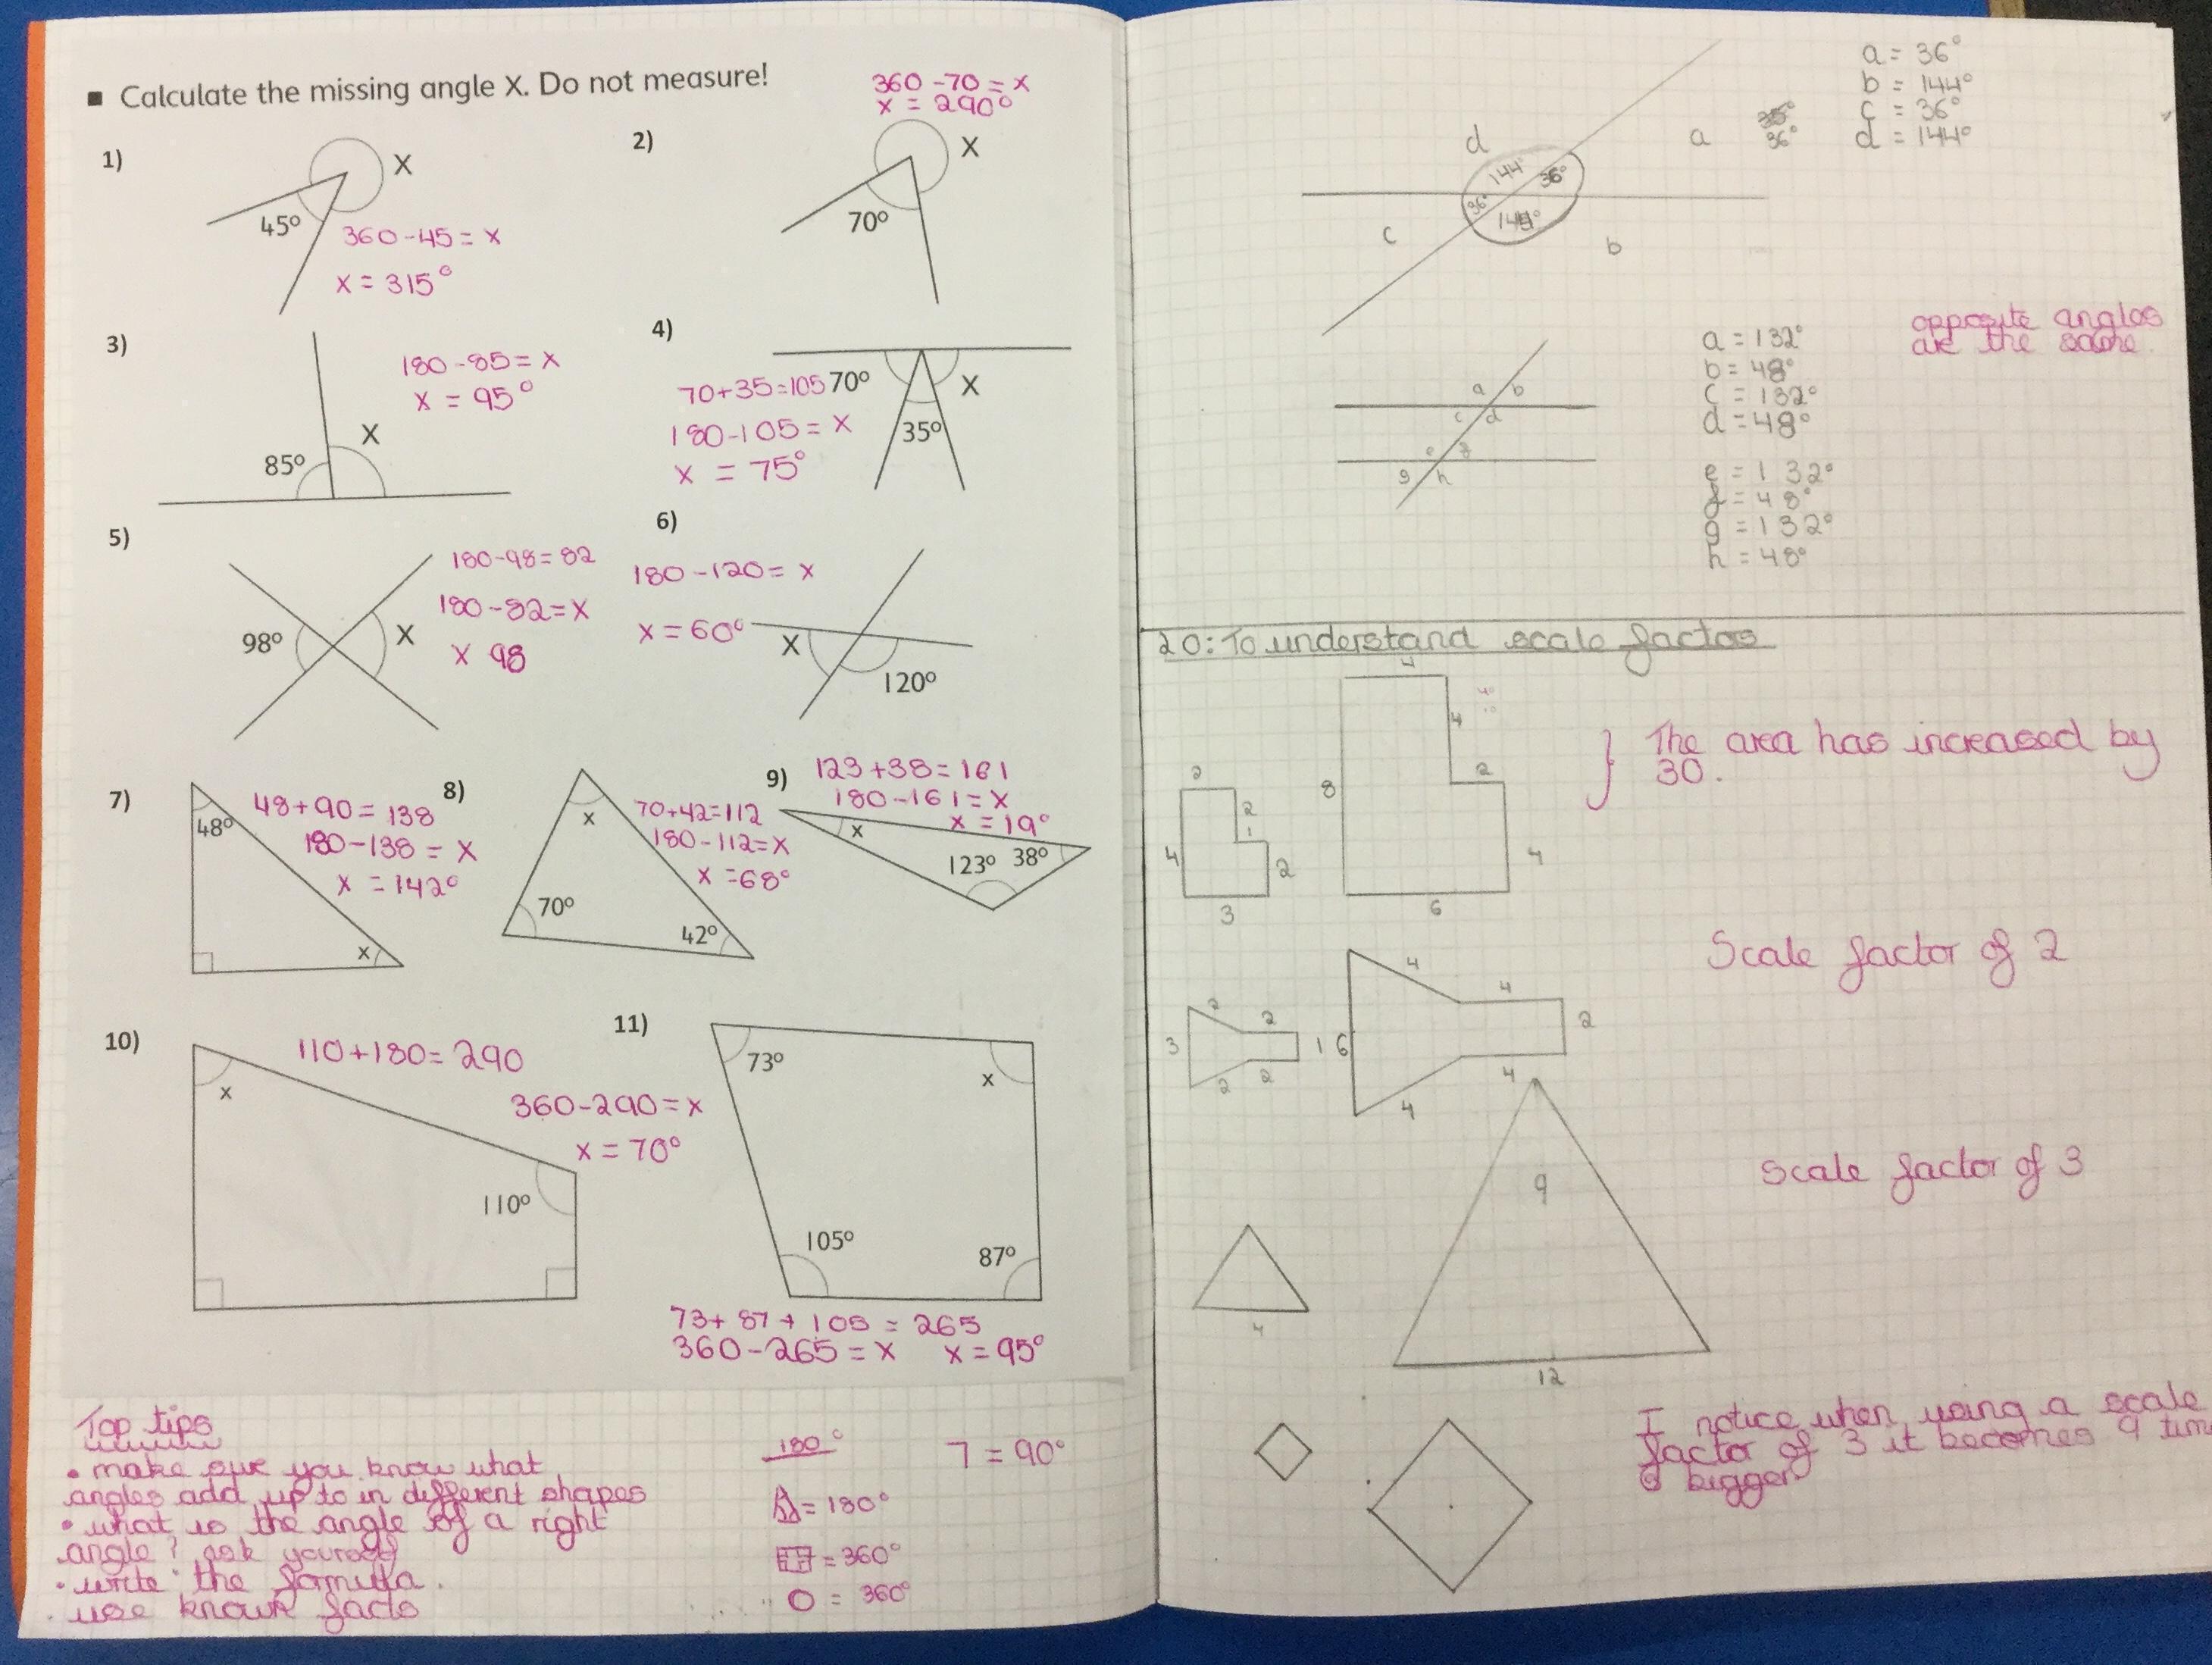 ■ Calculate the missing angle X. Do not measure!
1)
X
45º
360-45=x
x=315°
2)
360-70=x
x=290°
X
70º
3)
180-85=x
x=95°
X
85º
4)
70+35=105
70º
X
180-105=x
35º
x=75°
5)
180-98=82
180-82=x
98º
X
x 98
6)
180-120=x
x=60°
X
120º
7)
48+90=138
48º
180-138=x
x=142°
x
8)
70+42=112
180-112=x
x
x=68°
70º
42º
9)
123+38=161
180-161=x
x=19°
x
123º
38º
10)
110+180=290
360-290=x
x=70°
x
110º
11)
73º
x
105º
87º
73+87+105=265
360-265=x x=95°
Top tips
• make sure you know what
angles add up to in different shapes
• what is the angle of a right
angle? ask yourself
• write the formula.
• use known facts
180°
=180°
=360°
O=360°
7=90°
a=36°
b=144°
c=36°
d=144°
36°
d
a
144°
36°
36°
144°
c
b
opposite angles
are the same.
a=132°
b=48°
c=132°
d=48°
e=132°
f=48°
g=132°
h=48°
a b
c d
e f
g h
20: To understand scale factors
4
4
2
8
4
6
2
2
1
4
2
3
The area has increased by
30.
Scale factor of 2
4
4
2
6
4
4
2
2
3
1
2
2
Scale factor of 3
9
4
12
I notice when using a scale
factor of 3 it becomes 9
bigger